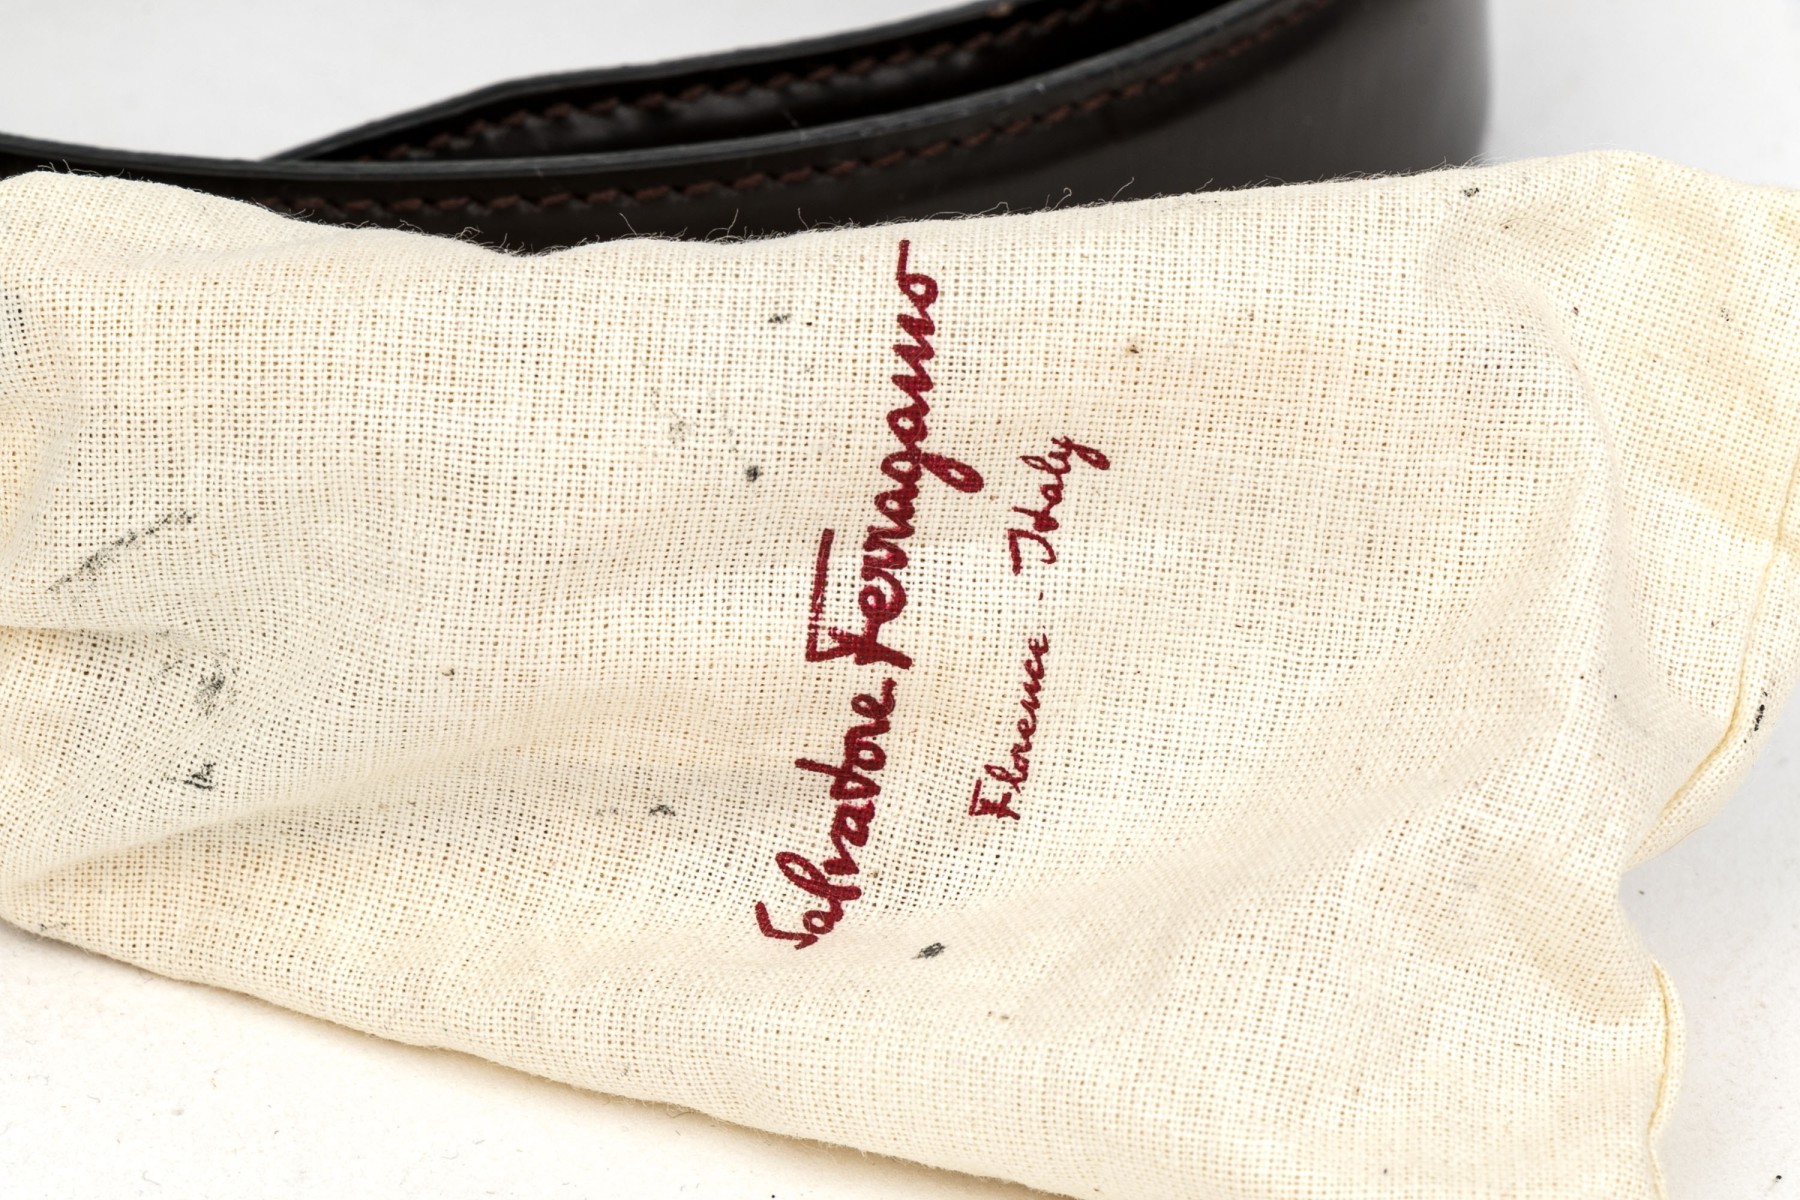 Salvatore Ferragamo
Florence - Italy